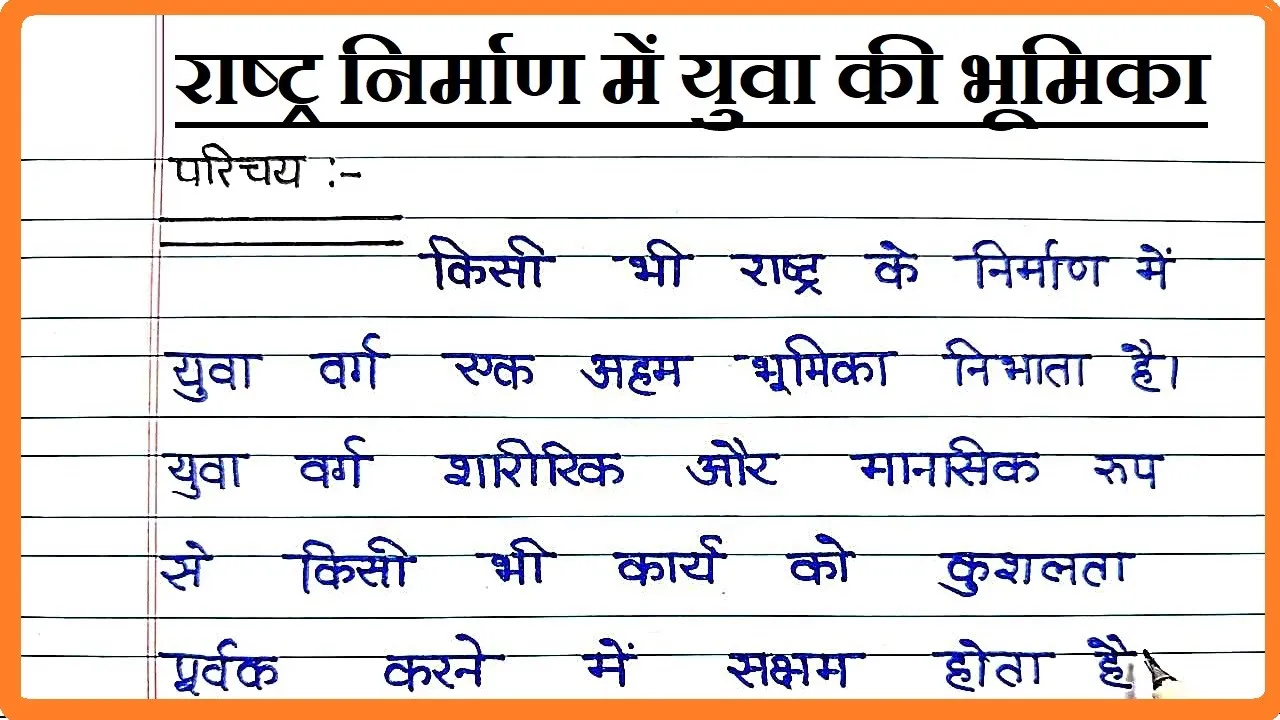 राष्ट्र निर्माण में युवा की भूमिका
परिचय :-
किसी भी राष्ट्र के निर्माण में
युवा वर्ग एक अहम भूमिका निभाता है।
युवा वर्ग शारीरिक और मानसिक रुप
से किसी भी कार्य को कुशलता
पूर्वक करने में सक्षम होता है